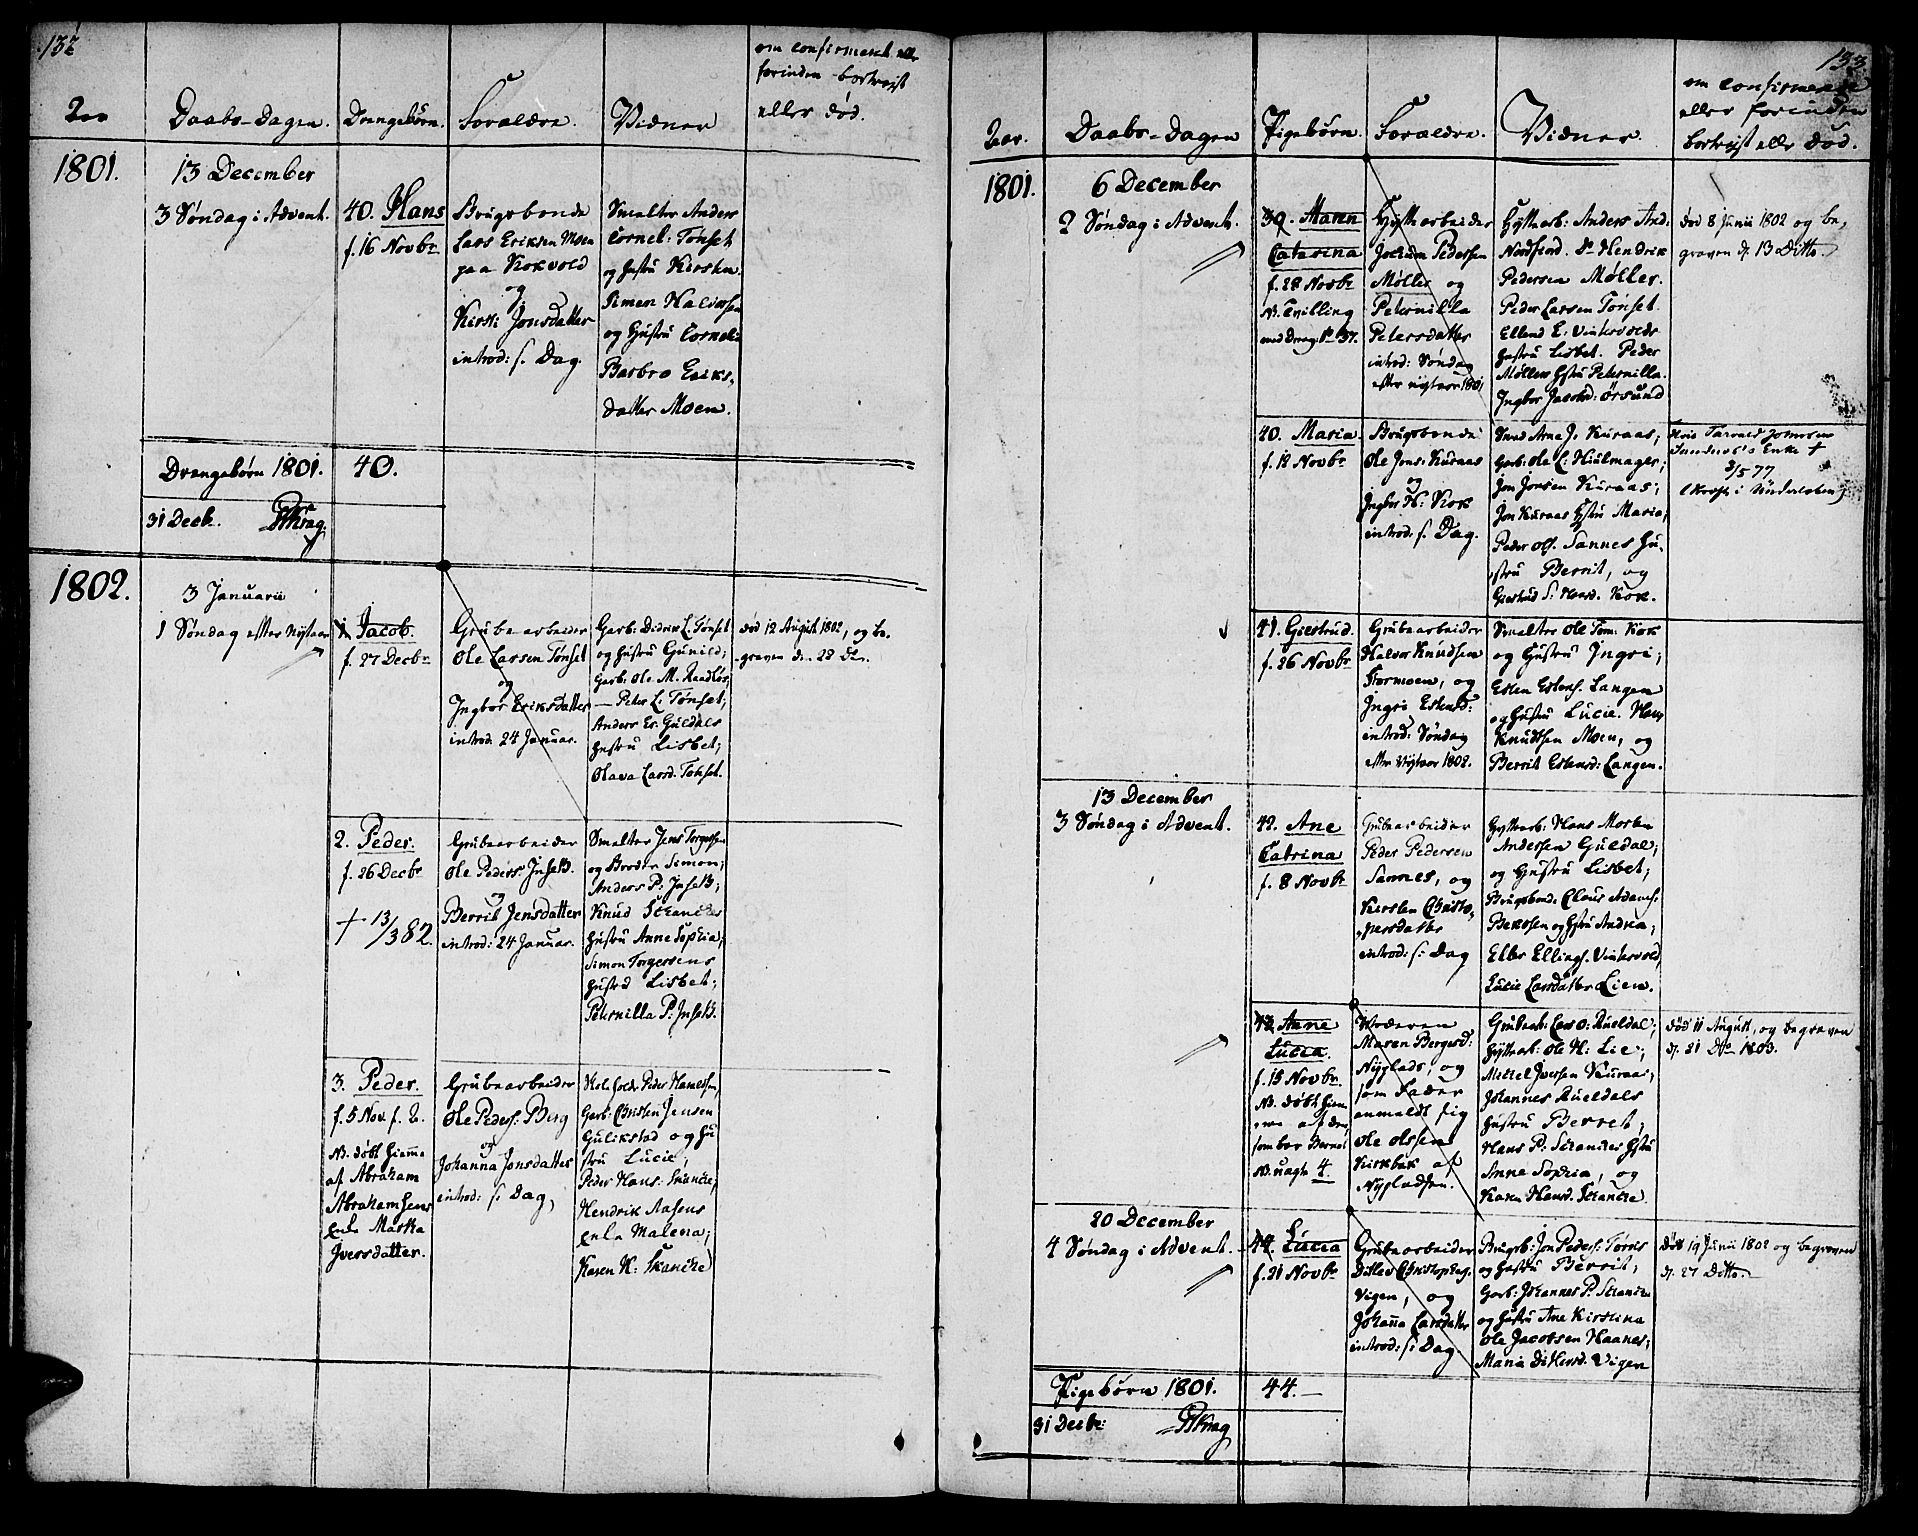 132
Aar
Daabs-Dagen.
Drengebørn.
Forældre.
Vidner
om confirmeret ell.
forinden bortreist
eller død.
1801.
13 December
3 Søndag i Advent.
40. Hans
f. 16 Novbr
Brugsbonde
Lars Eriksen Moen
paa Kokvold
og
Kirsti Jonsdatter
introd: s. Dag.
Smelter Anders
Cornel: Tønset
og Hustru Kirsten.
Simen Halvorsen
og Hustru Corneli:
Barbro Eriks-
datter Moen.
Drengebørn 1801.
40.
31 Decb.
PKrag.
1802.
3 Januarii
1 Søndag efter Nytaar
1. Jacob.
f. 27 Decbr
Grubearbeider
Ole Larsen Tønset
og
Ingbor Eriksdatter
introd. 24 Januar.
Garb. Didrik L. Tønset
og Hustru Gunild;
Garb. Ole M. Raadløs
— Peter L. Tønset;
Anders Er. Guldals
Hustru Lisbet;
Olava Larsd. Tønset.
død 12 August 1802, og be-
graven d. 22 Do.
2. Peder.
f. 26 Decbr
+ 13/3 82.
Grubearbeider
Ole Peders: Insetb.
og
Berrit Jensdatter
introd: 24 Januar.
Smelter Jens Torgersen
og Broder Simon;
Anders P. Insetb;
Knud Schanckes
Hustru Anne Sophia;
Simon Torgersens
Hustru Lisbet;
Peternilla P. Insetb.
3. Peder.
f. 5 Nov. f. A.
NB. døbt hiemme
af Abraham
Abrahamsens
Enke Marka
Iversdatter.
Grubearbeider
Ole Peders: Berg
og
Johanna Jonsdatter
introd: s. Dag,
Peder Hanessen,
Garb: Christen Jensen
Gulikstad og Hu
stru Lucie;
Peder Hans: Skancke,
Hendrik Aasens
Enke Malena;
Karen K: Skancke
133
Aar.
Daabs-Dagen
Pigebørn.
Forældre.
Vidner.
om confirmeret
eller forinden
bortreist elle død.
1801.
6 December
2 Søndag i Advent.
39. Maren
Catarina
f. 28 Novbr
NB. Tvilling
med Dreng: No 37.
Hyttearbeider
Jochum Pedersen
Møller og
Peternilla
Petersdatter
introd: Søndag
efter nytaar 1801
Hyttearb: Anders And.
Nordfiord. Do Hendrik
Pedersen Møller.
Peder Larsen Tønset.
Ellend E. Vintervolds
Hustru Lisbet. Peder
Møllers Hstru Peternilla.
Ingbor Jacobsd: Ørsund
død 8 Junii 1802 og be,
graven d. 13 Ditto.
40. Maria
f. 12 Novbr
Brugsbonde
Ole Jons: Kuraas
og
Ingbor H: Kok
introd: s. Dag.
Smed Arne J. Kuraas;
Garb: Ole L. Hiulmager;
Jon Jonsen Kuraas;
Jon Kuraas Hstru Maria;
Peder Ols. Sannes Hu-
stru Berrit, og
Giertrud S. Haard. Kok.
Enke +
3/5 77
41. Giertrud.
f. 26 Novbr
Grubearbeider
Halvor Knudsen
Stormoen, og
Ingri Estensd:
introd: Søndag
efter Nytaar 1802.
Smelter Ole Tom: Kok
og Hustru Ingri;
Esten Estens. Langen
og Hustru Lucie. Hans
Knudsen Moen, og
Berrit Estensd: Langen.
13 December
3 Søndag i Advent.
42. Ane
Catrina
f. 8 Novbr
Grubearbeider
Peder Pedersen
Sannes, og
Kirsten Christo-
phersdatter
introd: s: Dag
Hyttearb: Hans Morten
Andersen Guldal;
og Hustru Lisbet;
Brugsbond. Claus Adams:
Beksten og Hstru Andrea;
Elter Ellings. Vintervold,
Lucie Larsdatter Lien.
43 Anne
Lucia.
f. 15 Novbr
NB. døbt hiem
Moderen
Maren Bergesd:
Nyplads; og
som Fader
anmeldt sig
Ole Olssen
Kirkbak af
Nypladsen.
Grubearb: Lars O: Rueldal;
Hyttearb: Ole H: Lie;
Mikkel Iversen Kuraas;
Johannes Rueldals
Hustru Berret;
Hans P. Schanckes Hstru
Anne Sophia, og
Karen Hansd. Schancke.
død 11 August, og begraven
d. 21 Do 1803.
20 December
4 Søndag i Advent.
44. Lucia
f. 21 Novbr
Grubearbeider
Ditlev Christophers.
Vigen, og
Johanna Larsdatter
introd: s: Dag.
Brugsb: Jon Peders: Tørres
og Hustru Berrit,
Garb: Johannes P. Schancke
og Hustru Ane Kirstina
Ole Jacobsen Haanes;
Maria Ditlevsd. Vigen
død 19 Junii 1802 og begraven
d. 27 Ditto.
Pigebørn 1801.
44.—
31 Decbr:
PKrag